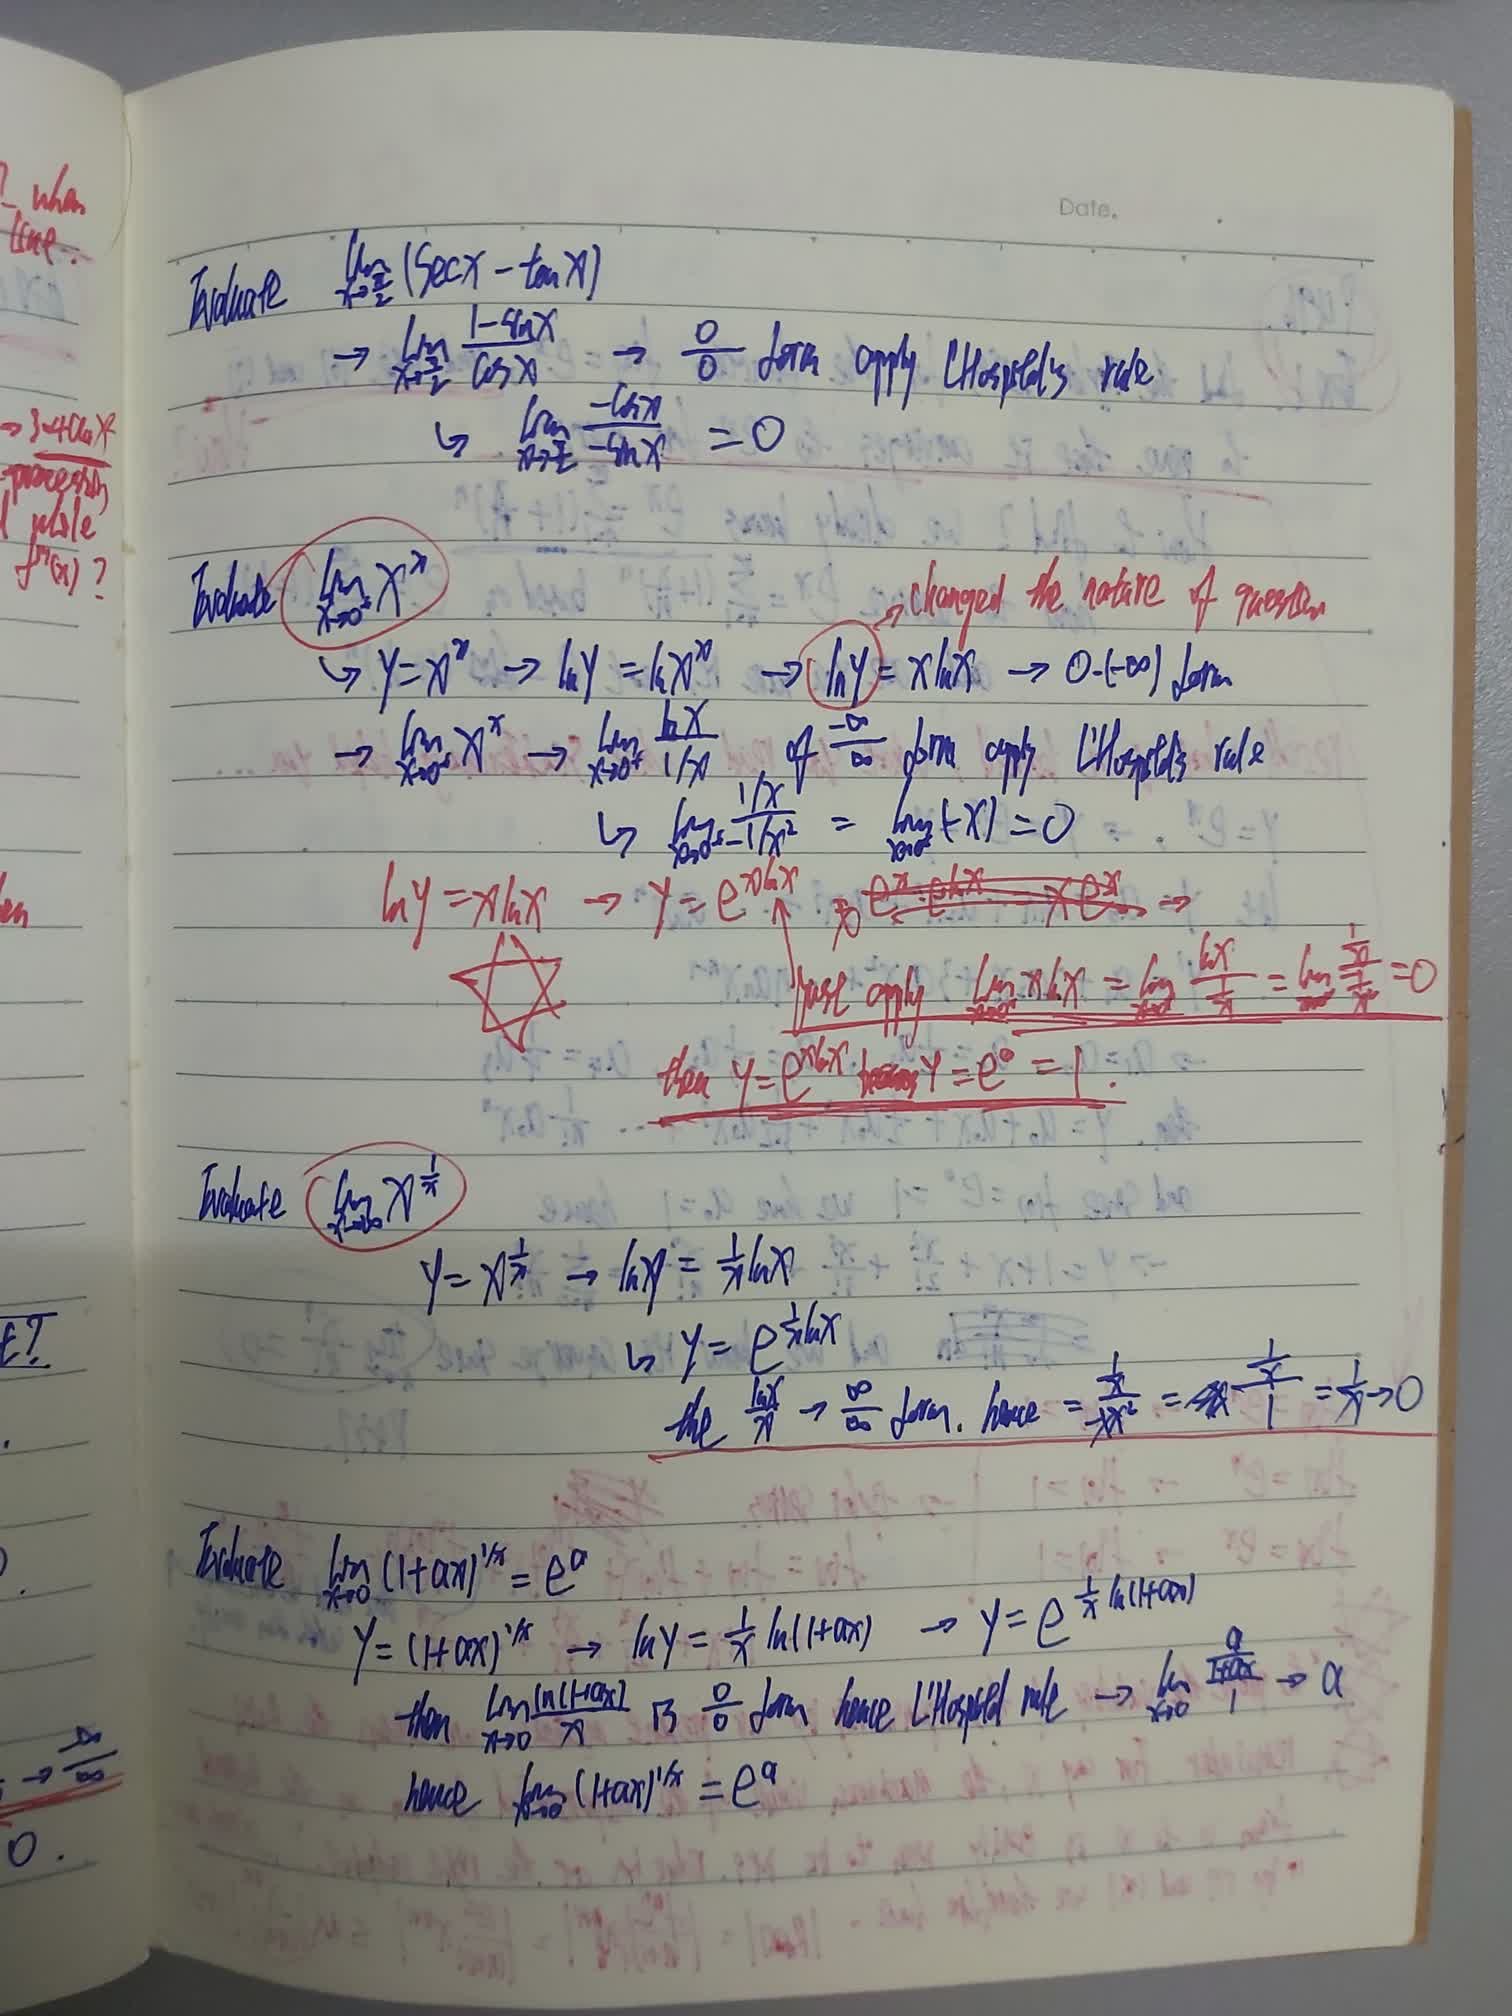 ? when
line.
→ 3-40
whole
fⁿ(x)?
E?
0.
Date.
Evaluate lim x→π/2 (Sec x − tan x)
→ lim x→π/2 (1−sin x)/(cos x) → 0/0 form apply L'Hospital's rule
↳ lim x→π/2 (−cos x)/(−sin x) = 0
Evaluate lim x→0⁺ x^x
→ changed the nature of question
↳ y = x^x → ln y = ln x^x → ln y = x ln x → 0·(−∞) form
→ lim x→0⁺ x^x → lim x→0⁺ (ln x)/(1/x) of −∞/∞ form apply L'Hospital's rule
↳ lim x→0⁺ (1/x)/(−1/x²) = lim x→0⁺ (−x) = 0
ln y = x ln x → y = e^(x ln x)
just apply lim x→0⁺ x ln x = lim x→0⁺ (ln x)/(1/x) = lim x→0⁺ (1/x)/(1/x²) = 0
then y = e^(x ln x) becomes y = e⁰ = 1.
Evaluate lim x→∞ x^(1/x)
y = x^(1/x) → ln y = 1/x ln x
↳ y = e^(1/x ln x)
the (ln x)/x → ∞/∞ form. hence = (1/x)/(-1/x²) = (1/x)/1 = 1/x → 0
Evaluate lim x→0 (1+ax)^(1/x) = e^a
y = (1+ax)^(1/x) → ln y = 1/x ln(1+ax) → y = e^(1/x ln(1+ax))
then lim x→0 (ln(1+ax))/x is 0/0 form hence L'Hospital rule → lim x→0 (a/(1+ax))/1 → a
hence lim x→0 (1+ax)^(1/x) = e^a